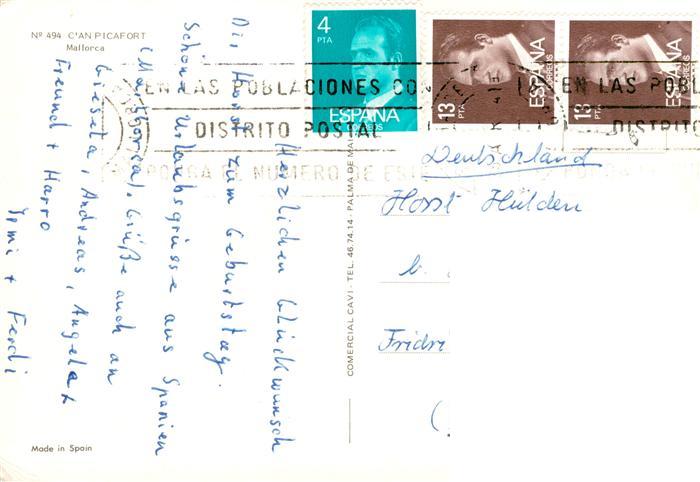 Nº 494 C'AN PICAFORT
Mallorca
Herzlichen Glückwunsch
Dir Horst zum Geburtstag.
Schöne Urlaubsgrüsse aus Spanien
(Mallorca), Grüße auch an
Giesela, Andreas, Angela +
Freund + Harro
Irmi + Ferdi
Made in Spain
COMERCIAL CAVI - TEL. 46.74.14 - PALMA DE MAL
4
PTA
ESPAÑA
CORREOS
13
PTA
ESPAÑA
CORREOS
13
PTA
ESPAÑA
CORREOS
EN LAS POBLACIONES CON
DISTRITO POSTAL
PONGA EL NUMERO DE ESTE
EN LAS POBL
DISTRITO
Deutschland
Horst Hülden
b.
Fridri
(